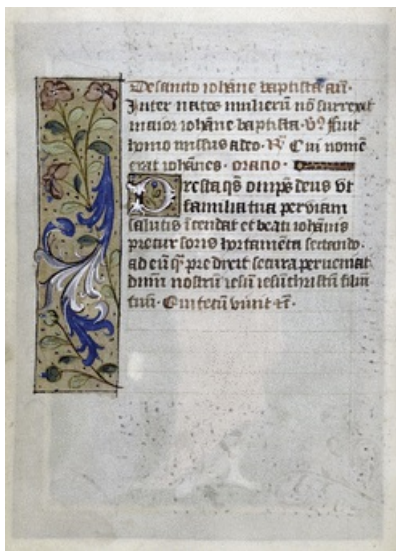 De sancto iohāne baptista añ.
Inter natos mulierū nō surrexit
maior iohāne baptista. V᷎ fuit
homo missus a deo. R᷎ Cui nomē
erat iohānes. oratio.
Presta qs̄ omp̄s deus vt
familia tua per viam
salutis īcendat et beati iohānis
precursoris hortamēta sectando.
ad eū q̄ predixit secura perueniat
dnm̄ nostrū iesū christū filiū
tuū. Qui tecū viuit